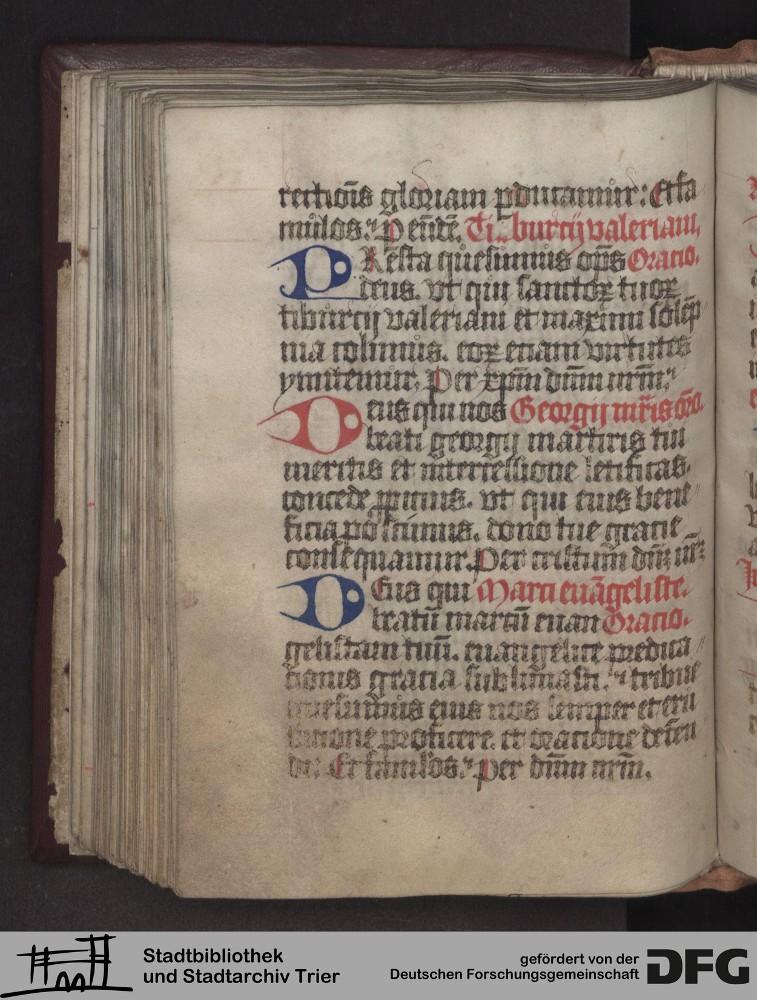 rectiois gloriam pducamur: Et fa
mulos. P eude. Tiburcij valeriani.
PResta quesumus ops Oracio.
deus. vt qui sanctoꝝ tuoꝝ
tiburcij valeriani et maximi solep
nia colimus. eoꝝ eciam virtutes
ymitemur. Per xpm dnm nrm.
Deus qui nos Georgij mris oro.
beati georgij martiris tui
meritis et intercessione letificas.
concede ppicius. vt qui eius bene
ficia poscimus. dono tue gracie
consequamur. Per cristum dnm nr
Deus qui Marci euageliste.
beatu marcu euan Oracio.
gelistam tuu. euangelice predica
tionis gracia sublimasti. tribue
quesumus eius nos semper et eru
ditione proficere. et oratione defen
di: Et famulos. Per dnm nrm.
Stadtbibliothek
und Stadtarchiv Trier
gefördert von der
Deutschen Forschungsgemeinschaft
DFG